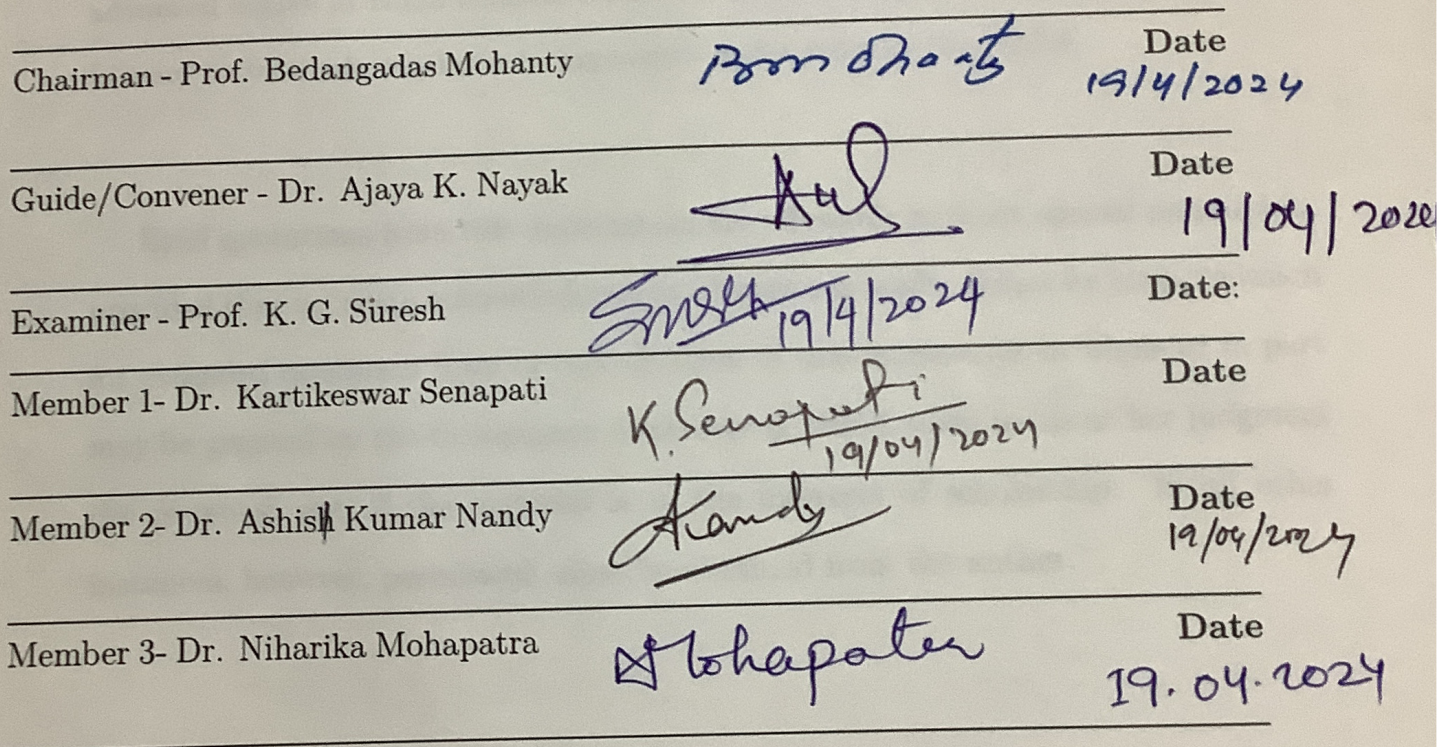 Chairman - Prof. Bedangadas Mohanty Date
19/4/2024
Guide/Convener - Dr. Ajaya K. Nayak Date
19/04/202
Examiner - Prof. K. G. Suresh 19/4/2024 Date:
Member 1- Dr. Kartikeswar Senapati K. Senapati Date
19/04/2024
Member 2- Dr. Ashish Kumar Nandy Nandy Date
19/04/2024
Member 3- Dr. Niharika Mohapatra Mohapatra Date
19.04.2024